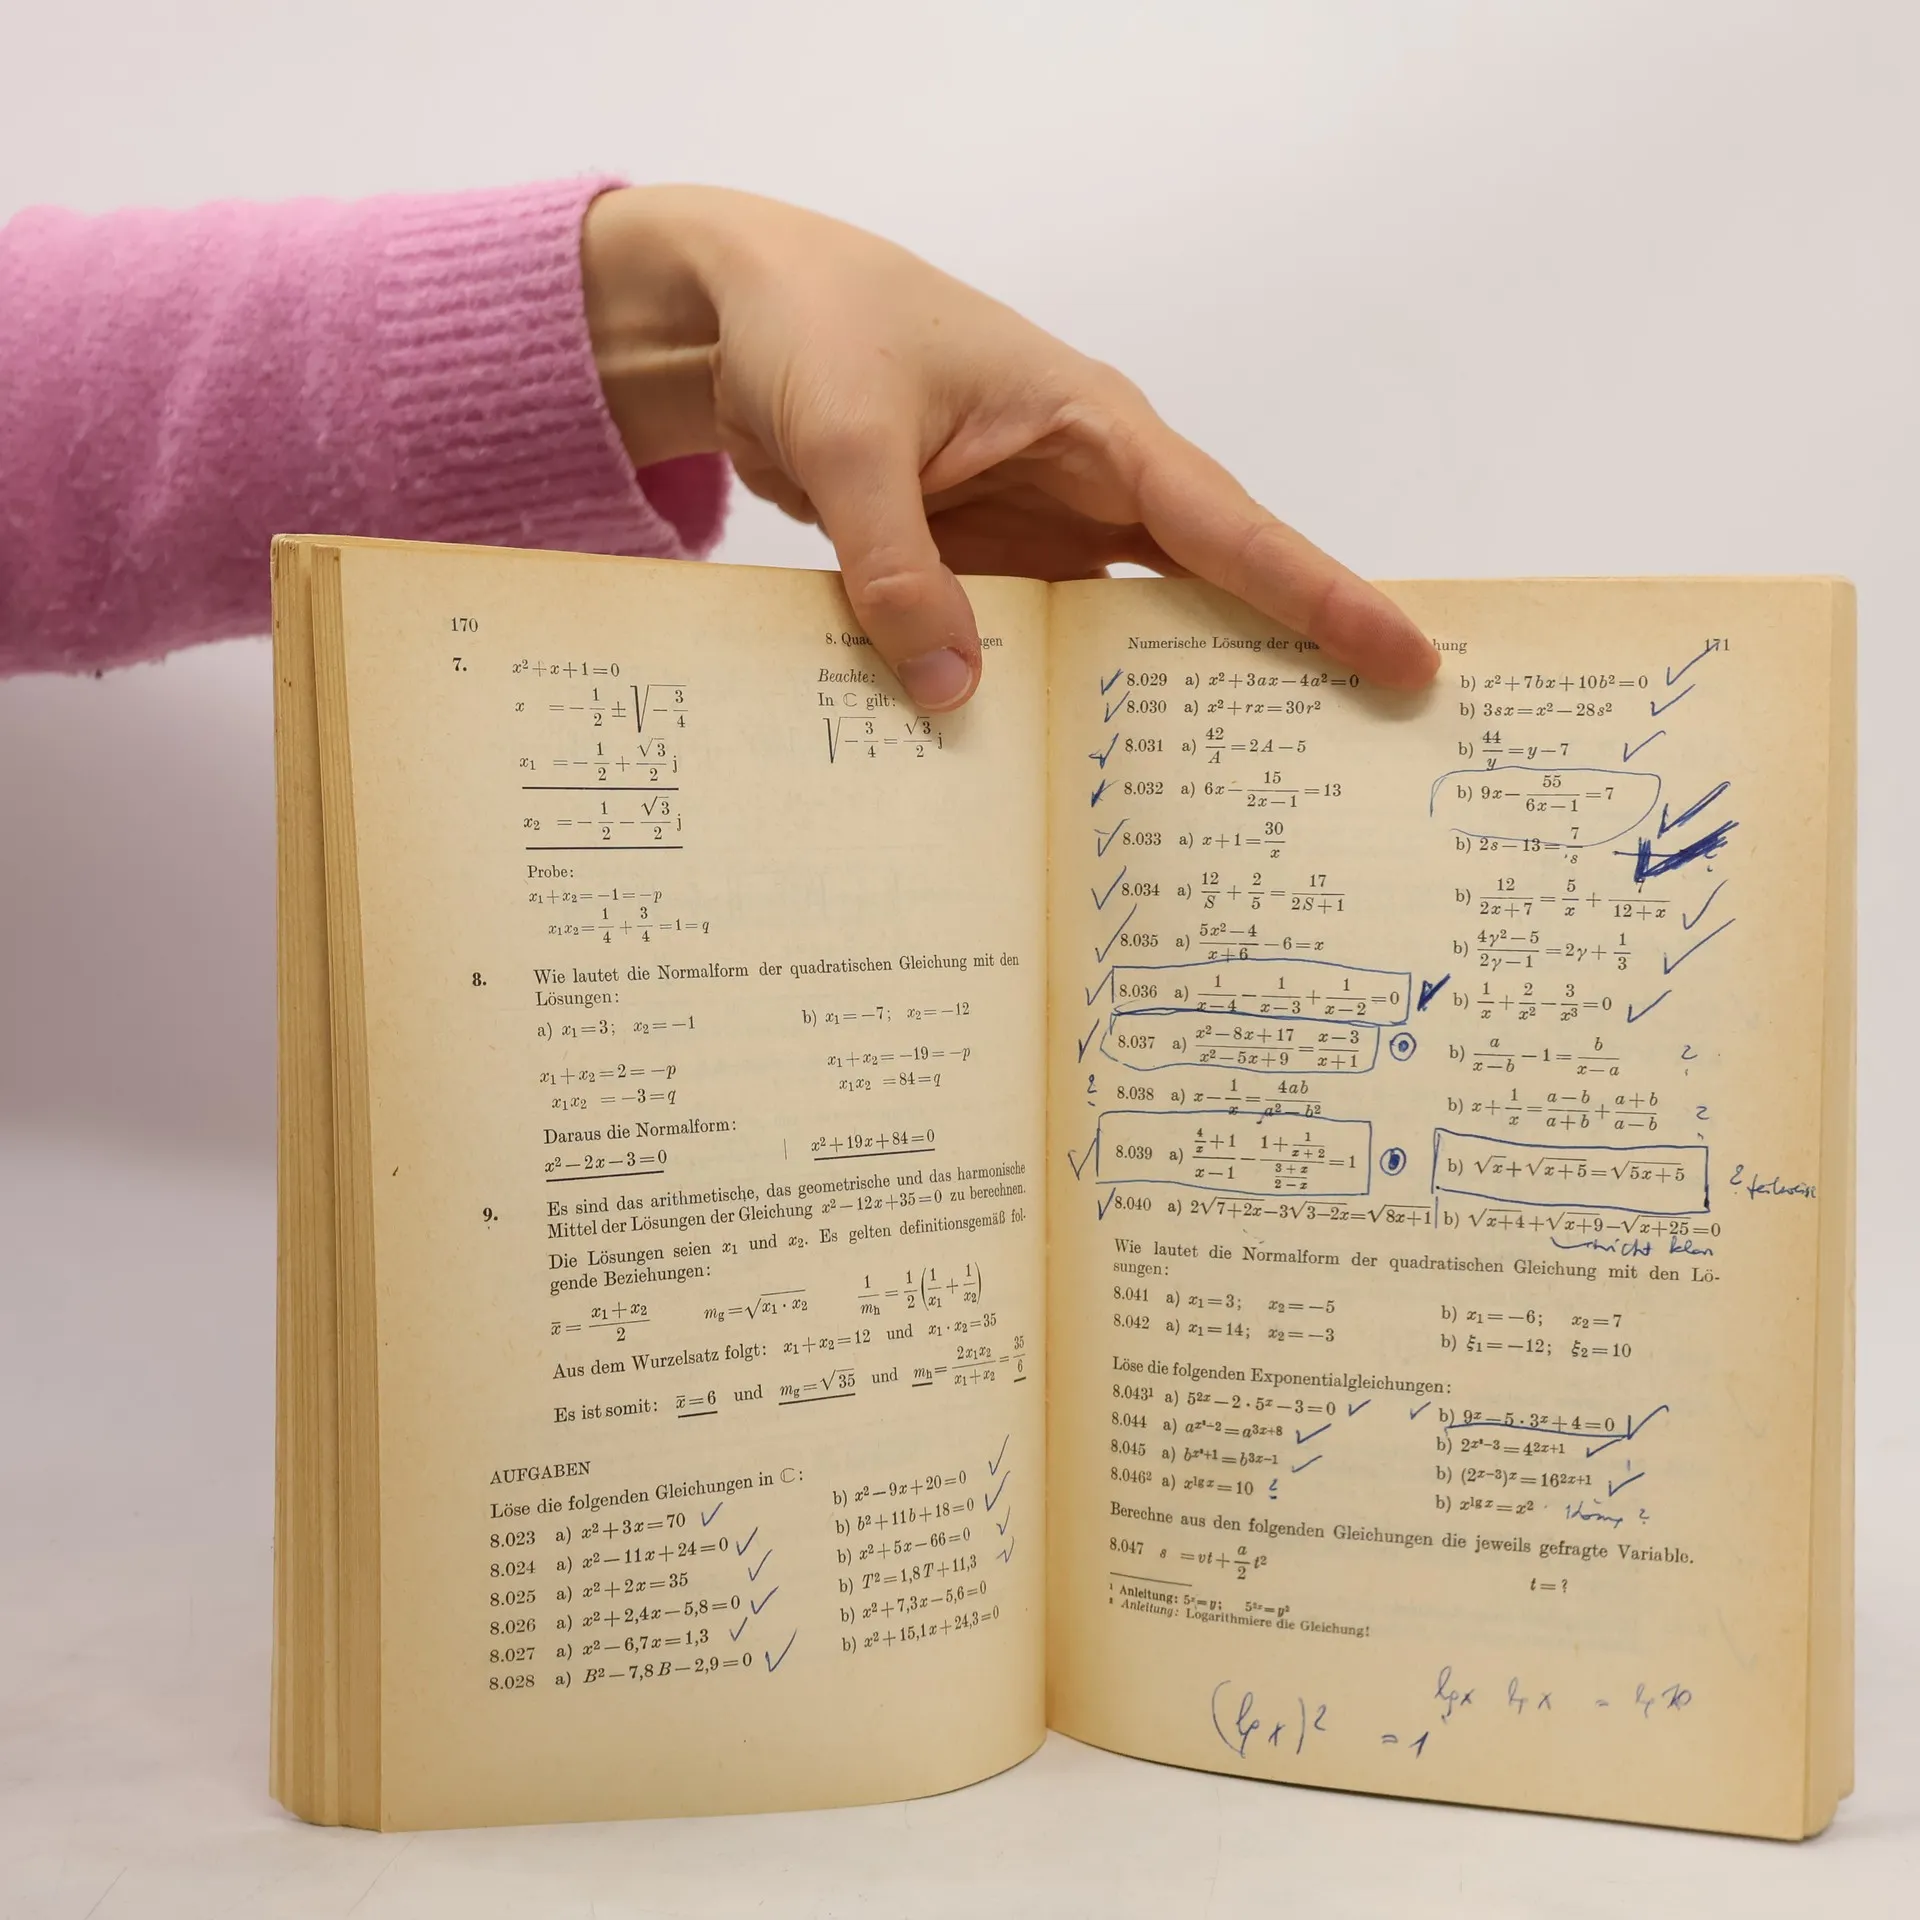 170
8. Qua gen
7. x²+x+1=0
x =−1/2±√(−3/4)
x₁ =−1/2+√3/2 j
x₂ =−1/2−√3/2 j
Beachte:
In ℂ gilt:
√(−3/4)=√3/2 j
Probe:
x₁+x₂=−1=−p
x₁x₂=1/4+3/4=1=q
8. Wie lautet die Normalform der quadratischen Gleichung mit den
Lösungen:
a) x₁=3; x₂=−1 b) x₁=−7; x₂=−12
x₁+x₂=2=−p x₁+x₂=−19=−p
x₁x₂ =−3=q x₁x₂ =84=q
Daraus die Normalform:
x²−2x−3=0 | x²+19x+84=0
9. Es sind das arithmetische, das geometrische und das harmonische
Mittel der Lösungen der Gleichung x²−12x+35=0 zu berechnen.
Die Lösungen seien x₁ und x₂. Es gelten definitionsgemäß fol-
gende Beziehungen:
x̄=(x₁+x₂)/2 m_g=√(x₁·x₂) 1/m_h=1/2(1/x₁+1/x₂)
Aus dem Wurzelsatz folgt: x₁+x₂=12 und x₁·x₂=35
Es ist somit: x̄=6 und m_g=√35 und m_h=2x₁x₂/(x₁+x₂)=35/6
AUFGABEN
Löse die folgenden Gleichungen in ℂ:
8.023 a) x²+3x=70 ✓ b) x²−9x+20=0 ✓
8.024 a) x²−11x+24=0 ✓ b) b²+11b+18=0 ✓
8.025 a) x²+2x=35 ✓ b) x²+5x−66=0 ✓
8.026 a) x²+2,4x−5,8=0 ✓ b) T²=1,8T+11,3 ✓
8.027 a) x²−6,7x=1,3 ✓ b) x²+7,3x−5,6=0
8.028 a) B²−7,8B−2,9=0 ✓ b) x²+15,1x+24,3=0
Numerische Lösung der qua hung 171
✓ 8.029 a) x²+3ax−4a²=0 b) x²+7bx+10b²=0 ✓
✓ 8.030 a) x²+rx=30r² b) 3sx=x²−28s² ✓
✓ 8.031 a) 42/A=2A−5 b) 44/y=y−7 ✓
✓ 8.032 a) 6x−15/(2x−1)=13 b) 9x−55/(6x−1)=7 ✓
✓ 8.033 a) x+1=30/x b) 2s−13=7/s
✓ 8.034 a) 12/S+2/5=17/(2S+1) b) 12/(2x+7)=5/x+7/(12+x) ✓
✓ 8.035 a) (5x²−4)/(x+6)−6=x b) (4γ²−5)/(2γ−1)=2γ+1/3 ✓
✓ 8.036 a) 1/(x−4)−1/(x−3)+1/(x−2)=0 ✓ b) 1/x+2/x²−3/x³=0 ✓
✓ 8.037 a) (x²−8x+17)/(x²−5x+9)=(x−3)/(x+1) b) a/(x−b)−1=b/(x−a) ?
? 8.038 a) x−1/x=4ab/(a²−b²) b) x+1/x=(a−b)/(a+b)+(a+b)/(a−b) ?
✓ 8.039 a) (4/x+1)/(x−1)−(1+1/(x+2))/((3+x)/(2−x))=1 b) √x+√(x+5)=√(5x+5) ? teilweise
✓ 8.040 a) 2√(7+2x)−3√(3−2x)=√(8x+1) b) √(x+4)+√(x+9)−√(x+25)=0
nicht klar
Wie lautet die Normalform der quadratischen Gleichung mit den Lö-
sungen:
8.041 a) x₁=3; x₂=−5 b) x₁=−6; x₂=7
8.042 a) x₁=14; x₂=−3 b) ξ₁=−12; ξ₂=10
Löse die folgenden Exponentialgleichungen:
8.043¹ a) 5²ˣ−2·5ˣ−3=0 ✓ ✓ b) 9ˣ−5·3ˣ+4=0 ✓
8.044 a) a^(x²−2)=a^(3x+8) ✓ b) 2^(x²−3)=4^(2x+1) ✓
8.045 a) b^(x²+1)=b^(3x−1) ✓ b) (2^(x−3))^x=16^(2x+1) ✓
8.046² a) x^(lg x)=10 ? b) x^(lg x)=x² ?
Berechne aus den folgenden Gleichungen die jeweils gefragte Variable.
8.047 s =vt+a/2 t² t=?
¹ Anleitung: 5ˣ=y; 5²ˣ=y²
² Anleitung: Logarithmiere die Gleichung!
lg x lg x = lg 10
(lg x)² = 1